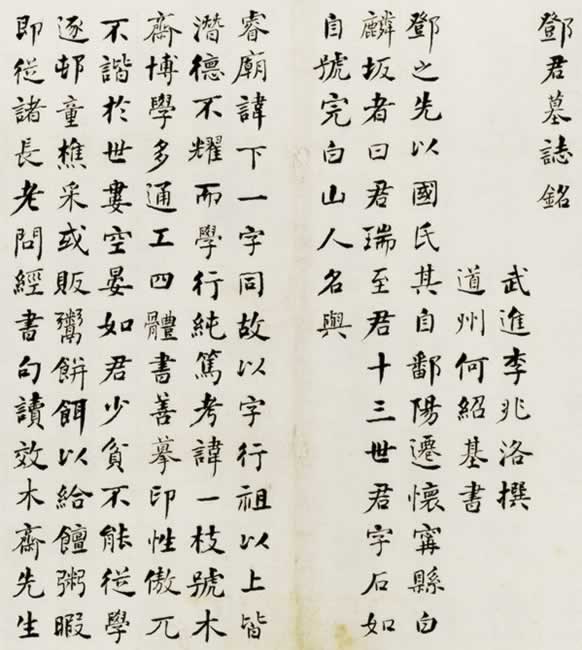 鄧君墓誌銘
武進李兆洛撰
道州何紹基書
鄧之先以國氏其自鄱陽遷懷寗縣白
麟坂者曰君瑞至君十三世君字石如
自號完白山人名與
睿廟諱下一字同故以字行祖以上皆
潛德不耀而學行純篤考諱一枝號木
齋博學多通工四體書善摹印性傲兀
不諧於世婁空晏如君少貧不能從學
逐邨童樵采或販鬻餅餌以給饘粥暇
即從諸長老問經書句讀效木齋先生